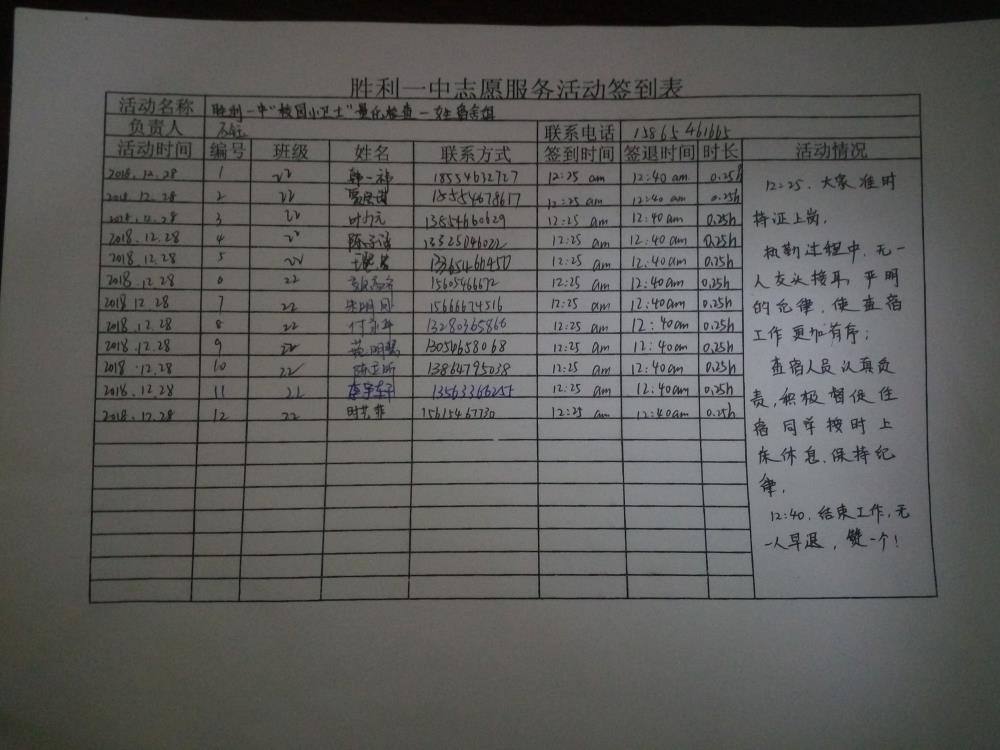 胜利一中志愿服务活动签到表
活动名称 胜利一中"校园小卫士"量化检查一女生宿舍组
负责人 联系电话 13865461665
活动时间 编号 班级 姓名 联系方式 签到时间 签退时间 时长 活动情况
2018.12.28 1 22 韩一祎 18554632727 12:25 am 12:40 am 0.25h
2018.12.28 2 22 15554678617 12:25 am 12:40 am 0.25h
2018.12.28 3 22 13854660629 12:25 am 12:40 am 0.25h
2018.12.28 4 22 12:25 am 12:40am 0.25h
2018.12.28 5 22 12:25 am 12:40am 0.25h
2018.12.28 6 22 15605466672 12:25 am 12:40am 0.25h
2018 12.28 7 22 15666674516 12:25 am 12:40am 0.25h
2018.12.28 8 22 13280365866 12:25 am 12:40am 0.25h
2018.12.28 9 22 13054658068 12:25 am 12:40am 0.25h
2018.12.28 10 22 13864795038 12:25 am 12:40am 0.25h
2018.12.28 11 21 12:25 am 12:40am 0.25h
2018.12.28 12 22 15615467730 12:25 am 12:40am 0.25h
12:25.大家准时
持证上岗.
执勤过程中,无一
人交头接耳,严明
的纪律,使查宿
工作更加有序;
查宿人员认真负
责,积极督促住
宿同学按时上
床休息.保持纪
律.
12:40.结束工作,无
一人早退,赞一个!